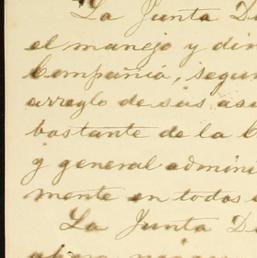 La Junta Di
el manejo y dir
Compañía, segun
arreglo de sus asu
bastante de la C
y general admini
mente en todos
La Junta Di